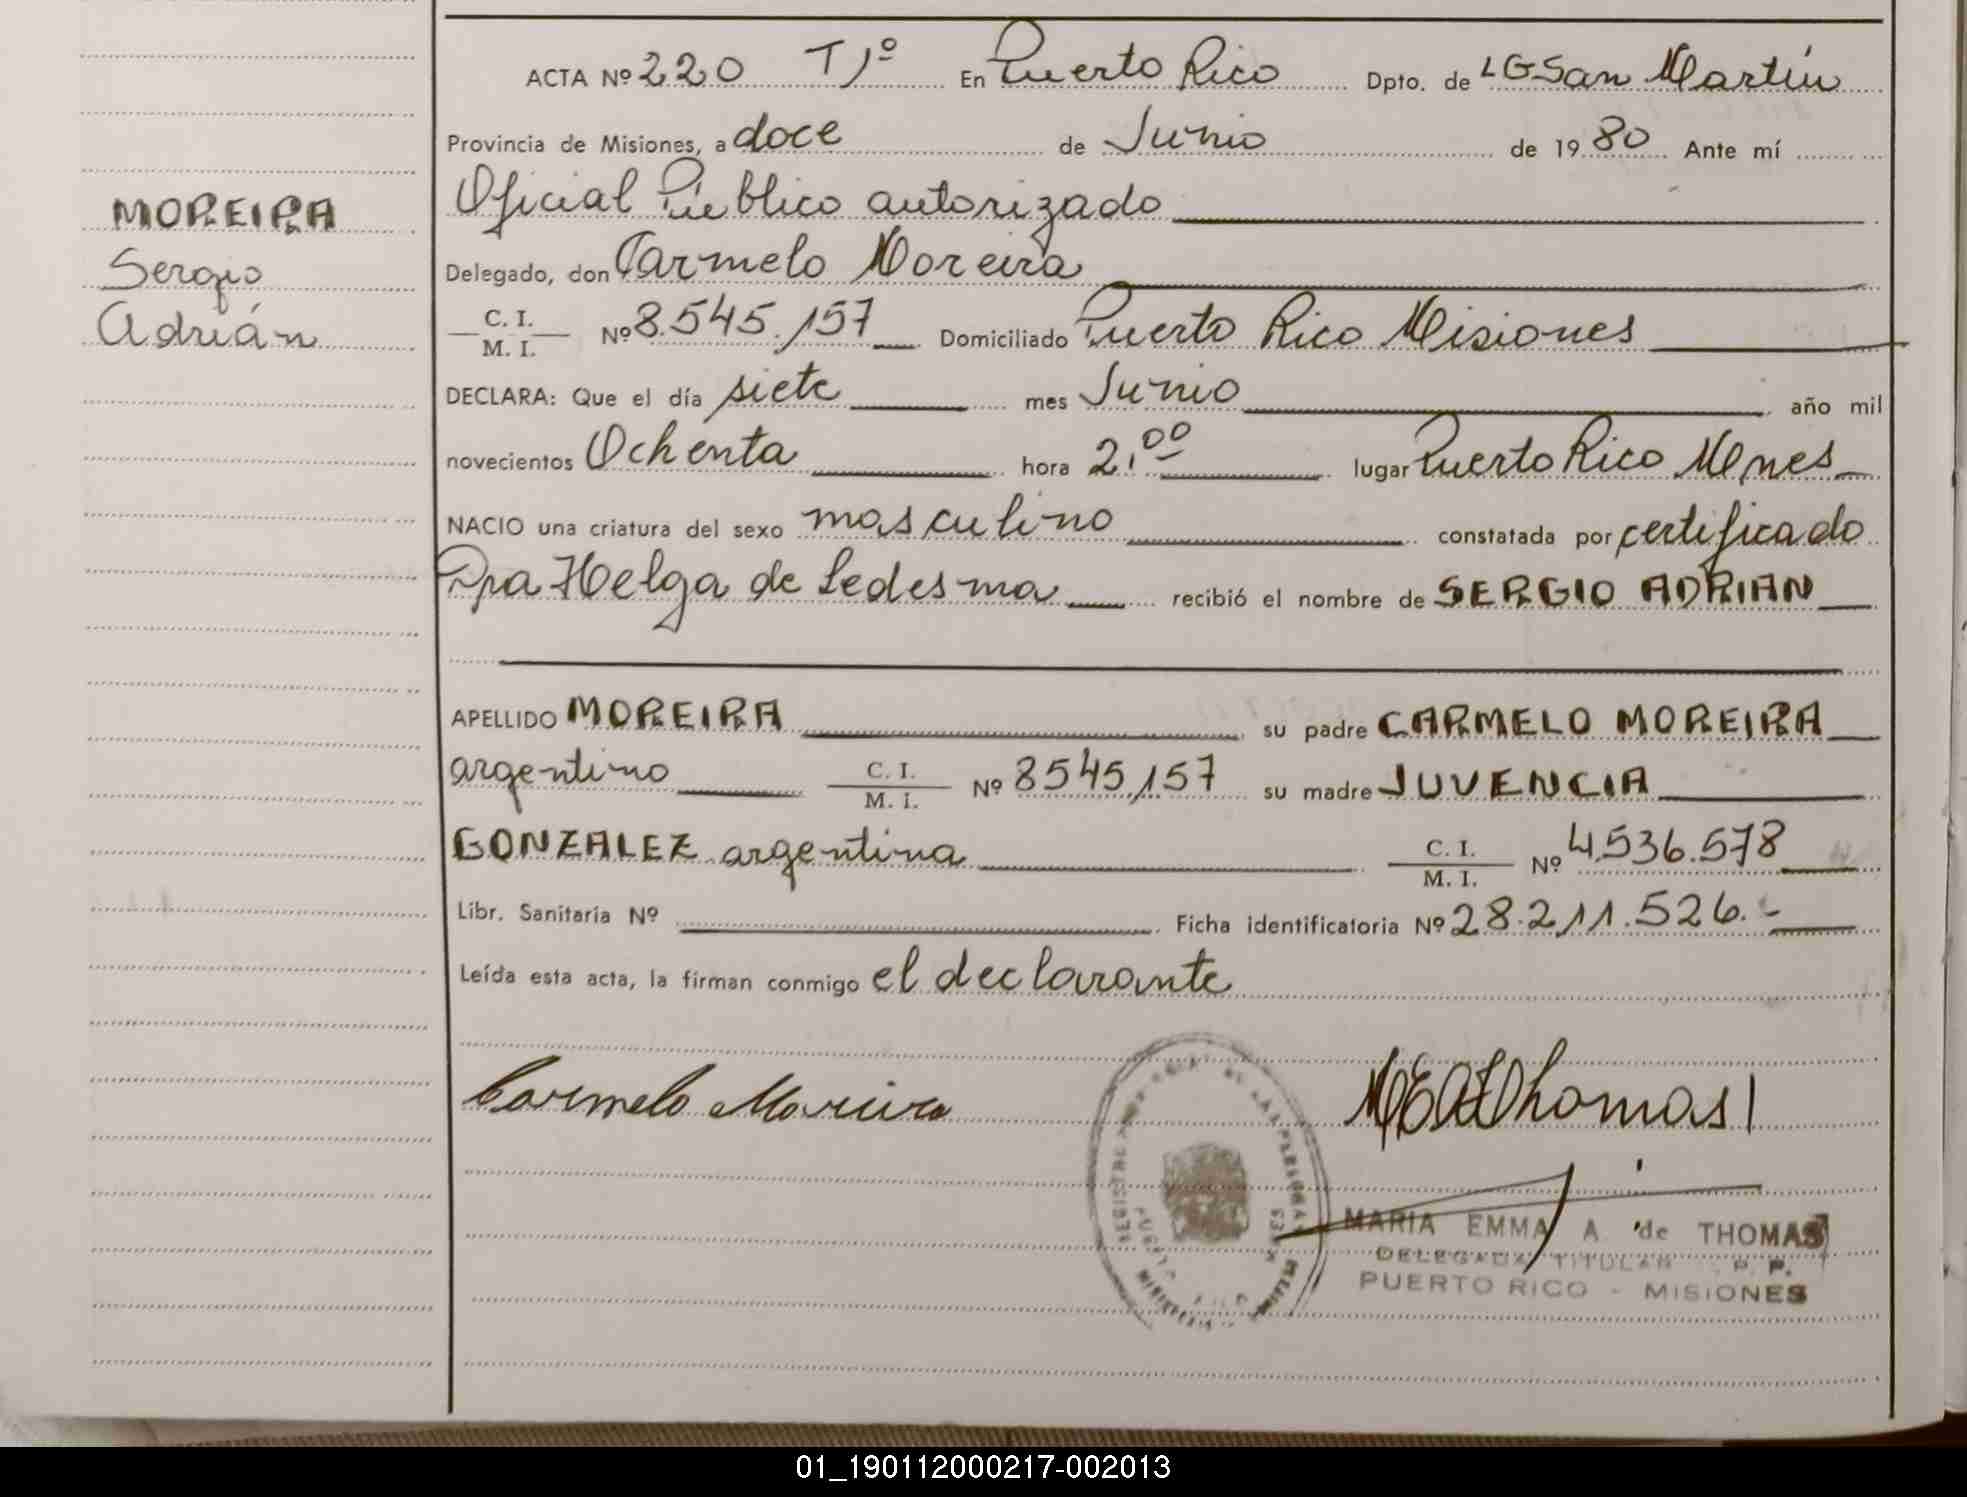 ACTA Nº 220 T1º En Puerto Rico Dpto. de LGSan Martín
Provincia de Misiones, a doce de Junio de 1980 Ante mí
Oficial Público autorizado
MOREIRA
Sergio
Adrián
Delegado, don Carmelo Moreira
C. I.
M. I. Nº 8.545.157 Domiciliado Puerto Rico Misiones
DECLARA: Que el día siete mes Junio año mil
novecientos Ochenta hora 2.00 lugar Puerto Rico Mnes
NACIO una criatura del sexo masculino constatada por certificado
Helga de Ledesma recibió el nombre de SERGIO ADRIAN
APELLIDO MOREIRA su padre CARMELO MOREIRA
argentino C. I.
M. I. Nº 8545.157 su madre JUVENCIA
GONZALEZ argentina C. I.
M. I. Nº 4.536.578
Libr. Sanitaria Nº Ficha identificatoria Nº 28.211.526.-
Leída esta acta, la firman conmigo el declarante
Carmelo Moreira
MEAdThomas
MARIA EMMA A. de THOMAS
DELEGADA TITULAR R. P.
PUERTO RICO - MISIONES
01_190112000217-002013